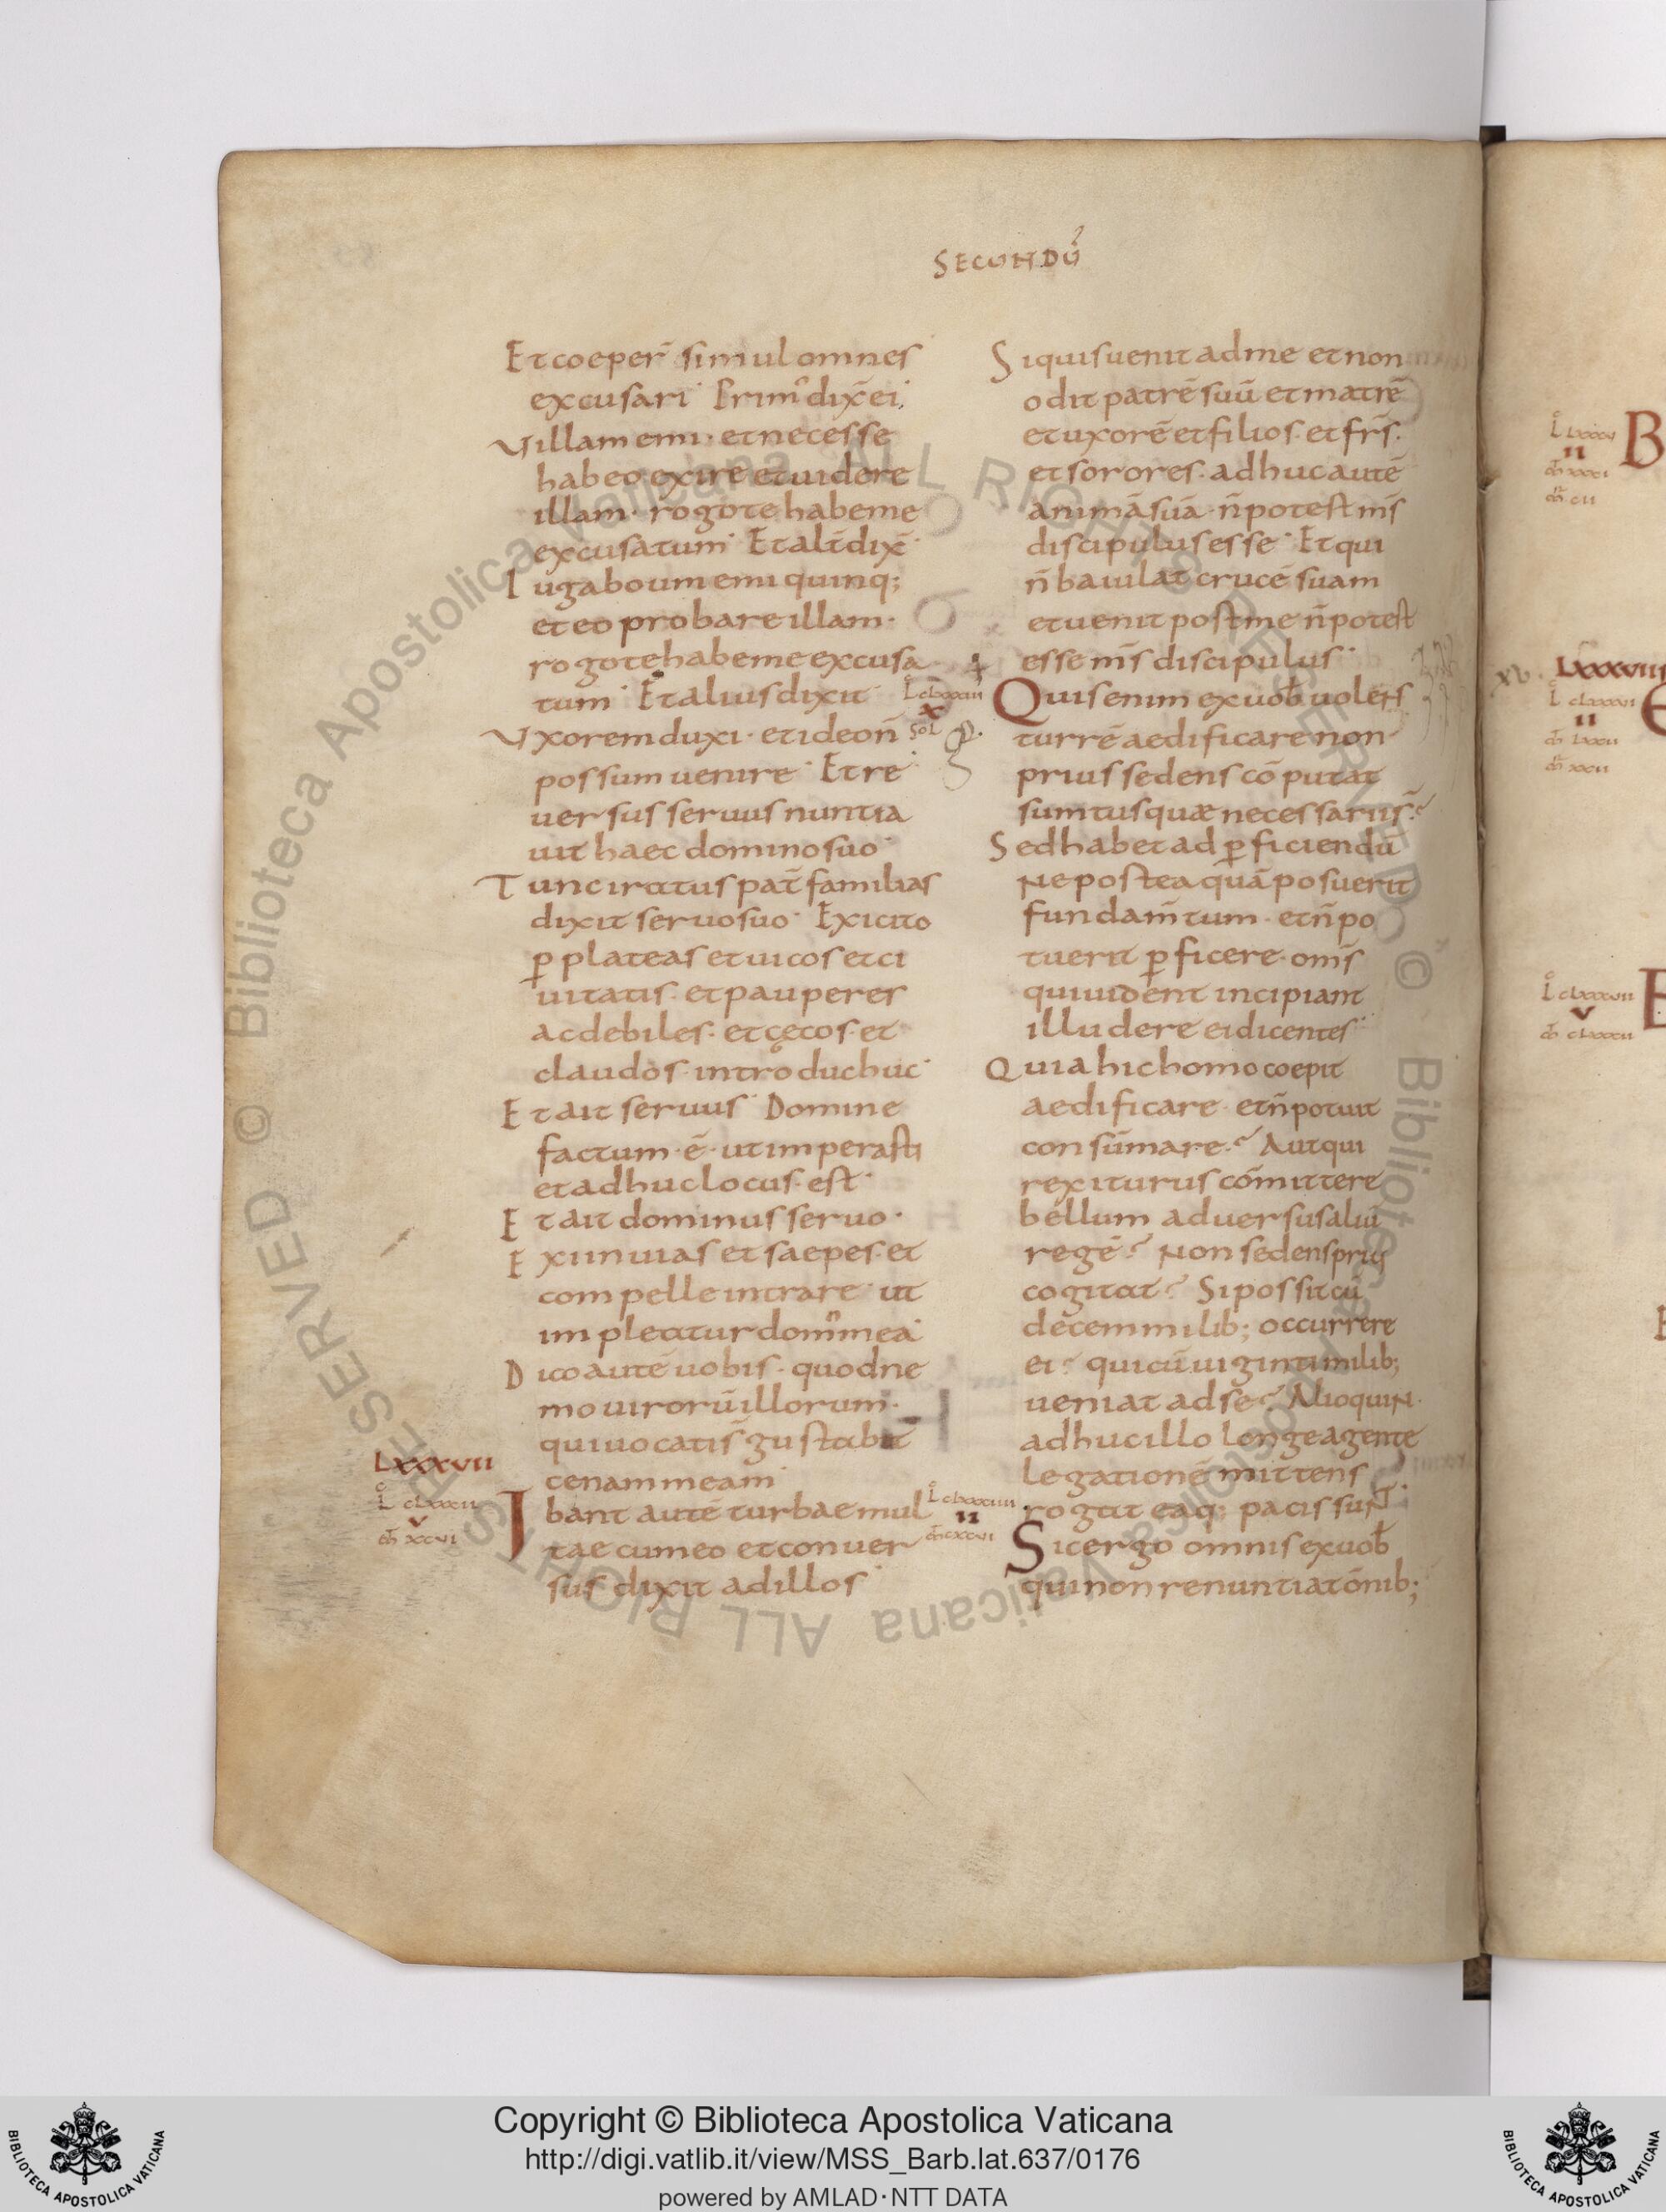 SECUNDŪ
Et coeper̄ simul omnes
excusari· Primᵒ dix̄ ei·
Villam emi· et necesse
habeo exire et uidere
illam· rogo te habe me
excusatum· Et alt̄ dix̄·
Iuga boum emi quinq;
et eo probare illam·
rogo te habe me excusa
tum· Et alius dixit
Vxorem duxi· et ideo n̄
possum uenire· Et re
uersus seruus nuntia
uit haec domino suo·
Tunc iratus pat̄ familias
dixit seruo suo· Exi cito
ꝑ plateas et uicos et ci
uitatis· et pauperes
ac debiles· et cęcos· et
claudos· introduc huc·
Et ait seruus· Domine
factum· ē· ut imperasti
et adhuc locus· est·
Et ait dominus seruo·
Exi in uias et saepes· et
compelle intrare· ut
impleatur dom̄ mea·
Dico autē uobis· quod ne
mo uirorū illorum·
qui uocati s̄ gustabit̄
cenam meam·
LXXXVII
L̊ CLXXXII
V
M̄ XCVI
Ibant autē turbae mul
tae cum eo et conuer
sus dixit ad illos·
Si quis uenit ad me et non
odit patrē suū et matrē
et uxorē et filios· et fr̄s·
et sorores· adhuc autē
animā suā· n̄ potest m̄s
discipulus esse· Et qui
n̄ baiulat crucē suam
et uenit post me n̄ potest
esse m̄s discipulus·
L̊ CLXXXIII
X
SOL
Quis enim ex uob̄ uolens
turrē aedificare non
prius sedens cōputat
sumtus quae necessarii s̄·?
Sed habet ad ꝑficiendū
Ne postea quā posuerit
fundam̄tum· et n̄ po
tuerit ꝑficere· om̄s
qui uident incipiant
illudere ei dicentes·
Quia hic homo coepit
aedificare· et n̄ potuit
consūmare·? Aut qui
rex iturus cōmittere
bellum aduersus aliū
regē? Non sedens prius
cogitat? Si possit cū
decem milib; occurrere
ei? qui cū uiginti milib;
ueniat ad se? Alioquin·
adhuc illo longe agente
legationē mittens
rogat ea q; pacis sunt̄·
L̊ CLXXXIIII
II
M̄ CXCVI
Sic ergo omnis ex uob̄
qui non renuntiat ōnib;
B
LXXXVIII
E
Copyright © Biblioteca Apostolica Vaticana
http://digi.vatlib.it/view/MSS_Barb.lat.637/0176
powered by AMLAD·NTT DATA
BIBLIOTECA APOSTOLICA VATICANA
BIBLIOTECA APOSTOLICA VATICANA
© Biblioteca Apostolica Vaticana ALL RIGHTS RESERVED © Biblioteca Apostolica Vaticana ALL RIGHTS RESERVED